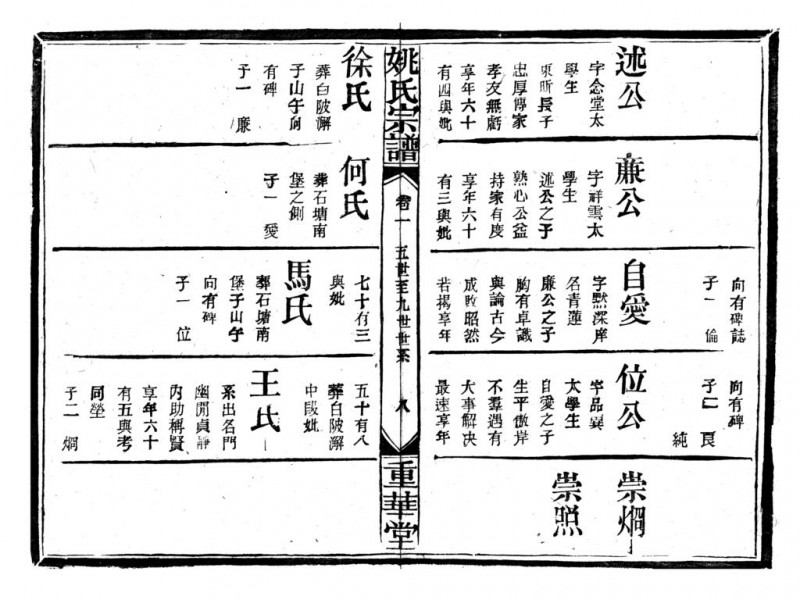 向有碑誌
子一 倫
向有碑
子二 良
純
述公
字念堂太
學生
東昕長子
忠厚傳家
孝友無虧
享年六十
有四與妣
亷公
字祥雲太
學生
述公之子
熱心公益
持家有度
享年六十
有三與妣
自愛
字默深庠
名青蓮
亷公之子
胸有卓識
與論古今
成敗昭然
若揭享年
位公
字品
太學生
自愛之子
生平傲岸
不羣遇有
大事解决
最速享年
崇烱
崇照
姚氏宗譜
卷一
五世至九世世系
八
重華堂
徐氏
葬白陂澥
子山午向
有碑
子一 亷
何氏
葬石塘南
堡之側
子一 愛
七十有三
與妣
馬氏
葬石塘南
堡子山午
向有碑
子一 位
五十有八
葬白陂澥
中段妣
王氏
系出名門
幽閒貞靜
内助稱賢
享年六十
有五與考
同塋
子二 烱